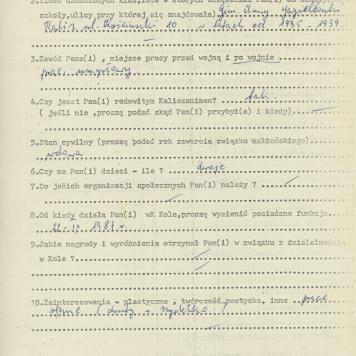 szkoły,ulicy przy której się znajdowała) Gim. Anny Jagiellonki
Kalisz ul. 10 w latach od 1935 - 1939
3.Zawód Pana(i) , miejsce pracy przed wojną i po wojnie
prac. umysłowy
4.Czy jesst Pan(i) rodowitym Kaliszaninem? tak
( jeśli nie ,proszę podać skąd Pan(i) przybył(a) i kiedy)
5.Stan cywilny (proszę podać rok zawarcia związku małżeńskiego)
wdowa
6.Czy ma Pan(i) dzieci - ile ? dwoje
7.Do jakich organizacji społecznych Pan(i) należy ?
8.Od kiedy działa Pan(i) wK Kole,proszę wymienić posiadane funkcje
1987 r
9.Jakie nagrody i wyróżnienia otrzymał Pan(i) w związku z działalnością
w Kole ?
10.Zainteresowania - plastyczne , twórczość poetycka, inne